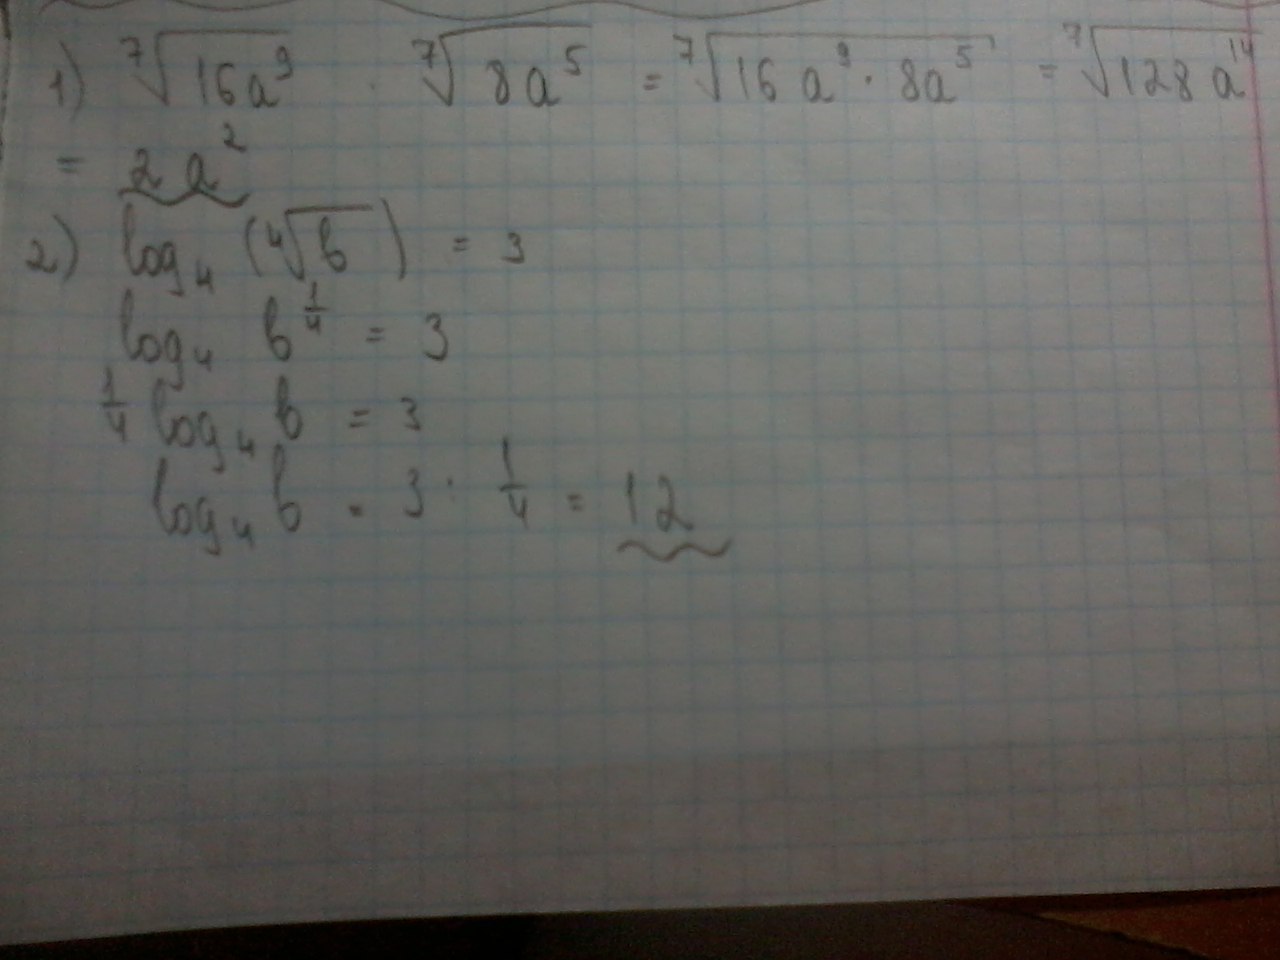 1) ⁷√(16a⁹) · ⁷√(8a⁵) = ⁷√(16a⁹ · 8a⁵) = ⁷√(128a¹⁴)
= 2a²
2) log₄ (⁴√b) = 3
log₄ b^(1/4) = 3
1/4 log₄ b = 3
log₄ b = 3 · 1/4 = 12